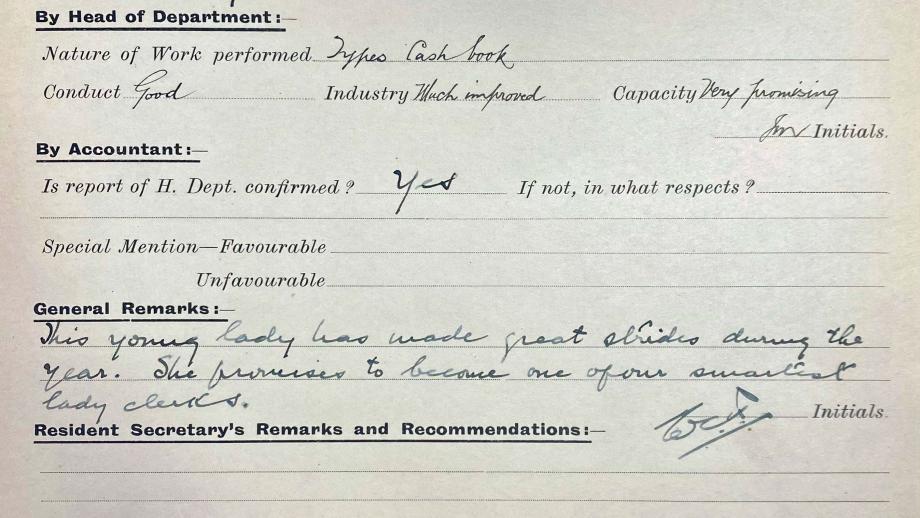 By Head of Department:—
Nature of Work performed Types Cash book
Conduct Good Industry Much improved Capacity Very promising
Initials.
By Accountant:—
Is report of H. Dept. confirmed? Yes If not, in what respects?
Special Mention—Favourable
Unfavourable
General Remarks:—
This young lady has made great strides during the
year. She promises to become one of our smartest
lady clerks.
Initials.
Resident Secretary's Remarks and Recommendations:—